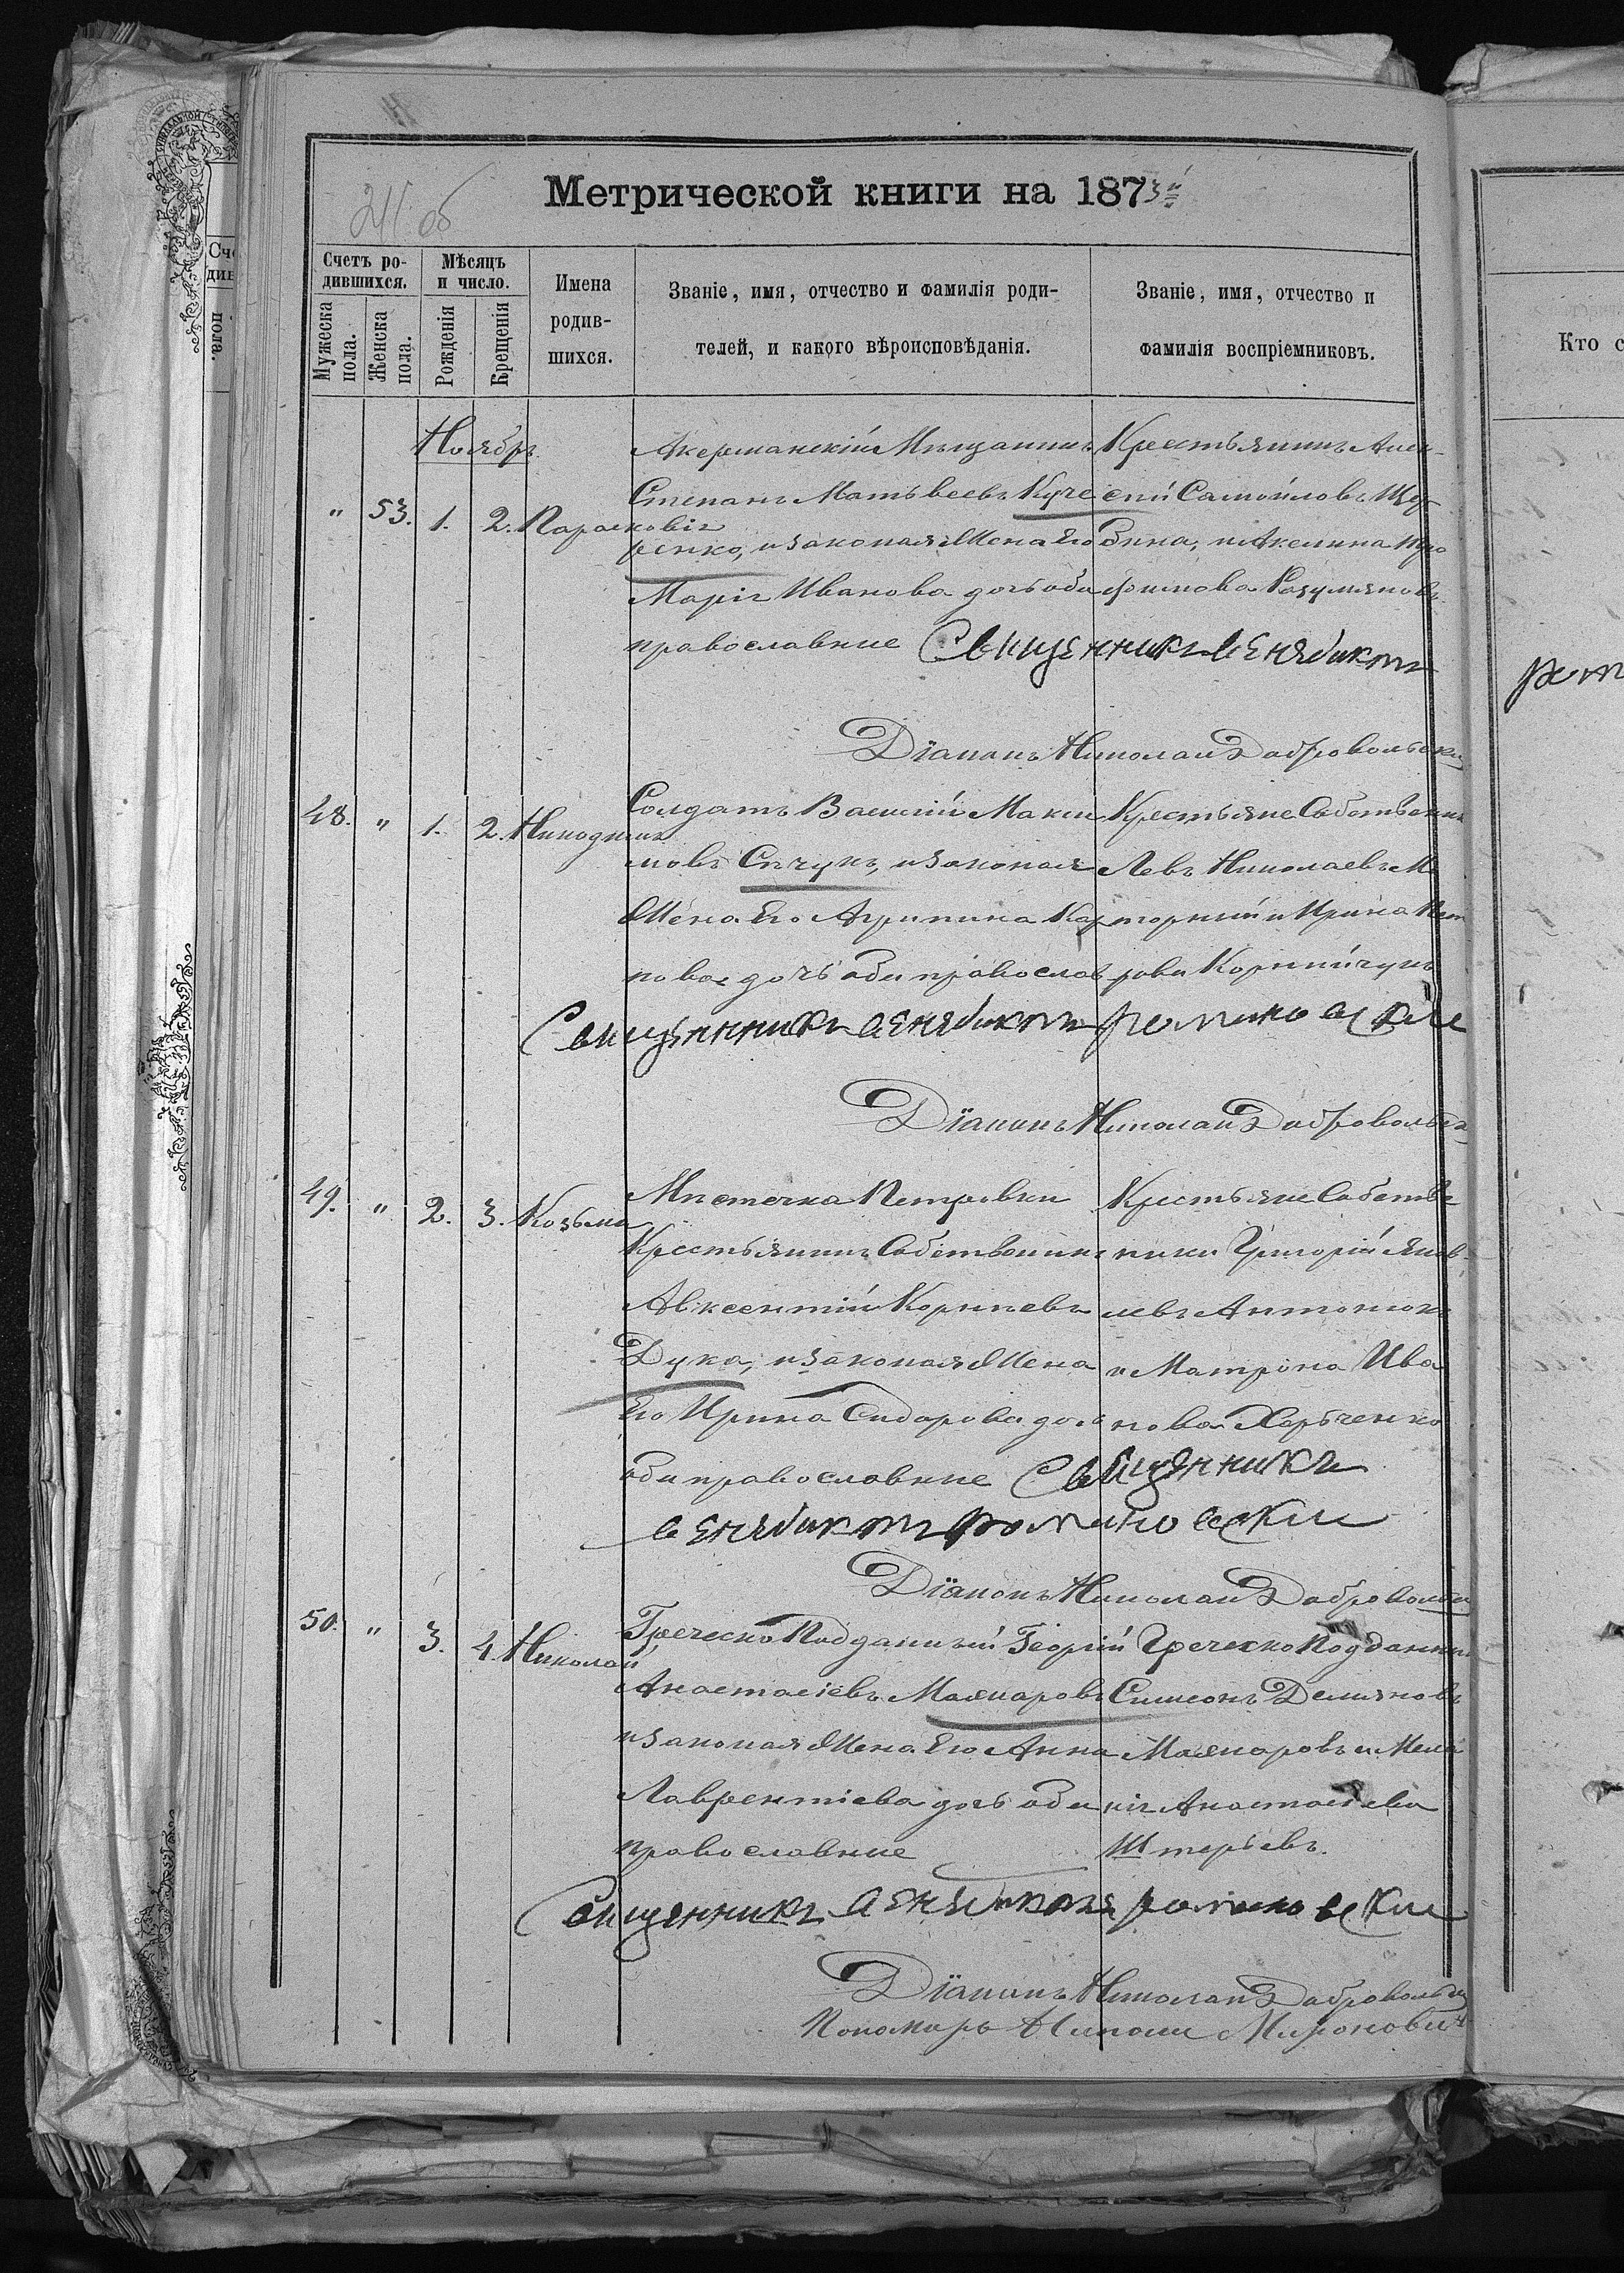 241 об
Метрической книги на 1873й
Счетъ ро-
дившихся.
Мѣсяцъ
и число.
Имена
родив-
шихся.
Званіе, имя, отчество и фамилія роди-
телей, и какого вѣроисповѣданія.
Званіе, имя, отчество и
фамилія воспріемниковъ.
Мужеска
пола.
Женска
пола.
Рожденія
Крещенія
Кто с
Ноябрь
" 53. 1. 2. Парасковія
Акерманскій Мѣщанинъ
Степанъ Матьвеевъ Куче
ренко, изаконая Жена Его
Марія Иванова дочь оба
православные
Крестьянинъ Алек-
сѣй Самойловъ Щер
бина, и Акелина Тро
фимова Разумянов
Священникъ Венядиктъ
Діаконъ Николай Добровольскі
48. " 1. 2. Никодимъ
Солдатъ Василій Макси
мовъ Спчукъ, изаконая
Жена Его Агрипина Кар
пова дочь оби православ
Крестьяне Собственни
Левъ Николаевъ М
торный и Ирина Пет
рова Корнійчукъ
Священникъ Венядиктъ Романовскіи
Діаконъ Николай Добровольск
49. " 2. 3. Козьма
Мѣстечка Петровки
Крестьянинъ Собственникъ
Авксентій Корнѣевъ
Дука, изаконая Жена
Его Ирина Сидорова дочь
оби православные
Крестьяне Собстве
ники Григорій Яков
левъ Антонюкъ
и Матрона Ива
нова Харченко
Священникъ
Венядиктъ Романовскіи
Діаконъ Николай Доброволск
50. " 3. 4. Николай
Греческо Подданный Георгій
Анастасіевъ Маянаровъ
изаконая Жена Его Анна
Лаврентіева дочь оби
православные
Греческо Подданны
Симеонъ Демяновъ
Маянаровъ и Мела
нія Анастасіева
Штерьевъ.
Священникъ Венядиктъ Романовскіи
Діаконъ Николай Доброволск
Пономарь Миронович